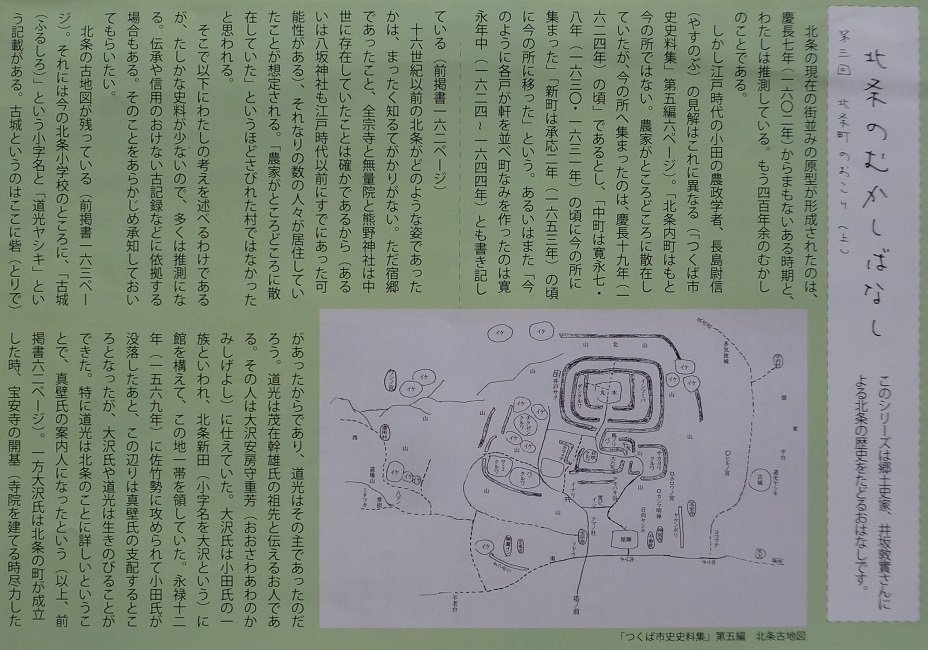 北条のむかしばなし
第三回 北条町のおこり(上)
このシリーズは郷土史家、井坂敦實さんに
よる北条の歴史をたどるおはなしです。
北条の現在の街並みの原型が形成されたのは、
慶長七年(一六〇二年)からまもないある時期と、
わたしは推測している。もう四百年余のむかし
のことである。
しかし江戸時代の小田の農政学者、長島尉信
(やすのぶ)の見解はこれに異なる(「つくば市
史史料集」第五編六ページ)。「北条内町はもと
今の所ではない。農家がところどころに散在し
ていたが、今の所へ集まったのは、慶長十九年(一
六一四年)の頃」であるとし、「中町は寛永七・
八年(一六三〇・一六三一年)の頃に今の所に
集まった」「新町は承応二年(一六五三年)の頃
に今の所に移った」という。あるいはまた「今
のように各戸が軒を並べ町なみを作ったのは寛
永年中(一六二四~一六四四年)とも書き記し
ている(前掲書一六二ページ)
十六世紀以前の北条がどのような姿であった
かは、まったく知るてがかりがない。ただ宿郷
であったこと、全宗寺と無量院と熊野神社は中
世に存在していたことは確かであるから(ある
いは八坂神社も江戸時代以前にすでにあった可
能性がある)、それなりの数の人々が居住してい
たことが想定される。「農家がところどころに散
在していた」というほどさびれた村ではなかった
と思われる。
そこで以下にわたしの考えを述べるわけである
が、たしかな史料が少ないので、多くは推測にな
る。伝承や信用のおけない古記録などに依拠する
場合もある。そのことをあらかじめ承知しておい
てもらいたい。
北条の古地図が残っている(前掲書一六三ペー
ジ)。それには今の北条小学校のところに、「古城
(ふるしろ)」という小字名と「道光ヤシキ」とい
う記載がある。古城というのはここに砦(とりで)
があったからであり、道光はその主であったのだ
ろう。道光は茂在幹雄氏の祖先と伝えるお人であ
る。その人は大沢安房守重芳(おおさわあわのか
みしげよし)に仕えていた。大沢氏は小田氏の一
族といわれ、北条新田(小字名を大沢という)に
館を構えて、この地一帯を領していた。永禄十二
年(一五六九年)に佐竹勢に攻められて小田氏が
没落したあと、この辺りは真壁氏の支配するとこ
ろとなったが、大沢氏や道光は生きのびることが
できた。特に道光は北条のことに詳しいというこ
とで、真壁氏の案内人になったという(以上、前
掲書六二ページ)。一方大沢氏は北条の町が成立
した時、宝安寺の開基(寺院を建てる時尽力した
「つくば市史史料集」第五編 北条古地図
イケ
イケ
山
北
山
東
中台
道光ヤシキ
古城
本丸
イケ
イケ
山
西
道場山
不老台
南
塔ノ前